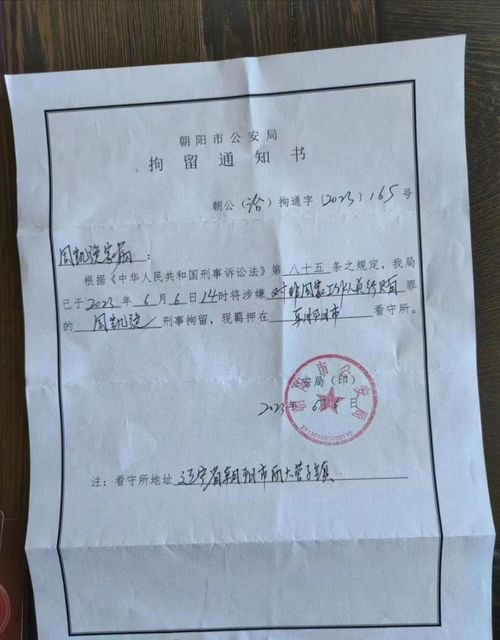 朝阳市公安局
拘留通知书
朝公（治）拘通字〔2023〕165号
周凯旋家属：
根据《中华人民共和国刑事诉讼法》第八十五条之规定，我局
已于2023年6月6日14时将涉嫌对非国家工作人员行贿罪
的周凯旋刑事拘留，现羁押在朝阳市看守所。
公安局（印）
2023年6月6日
注：看守所地址 辽宁省朝阳市 大营子镇